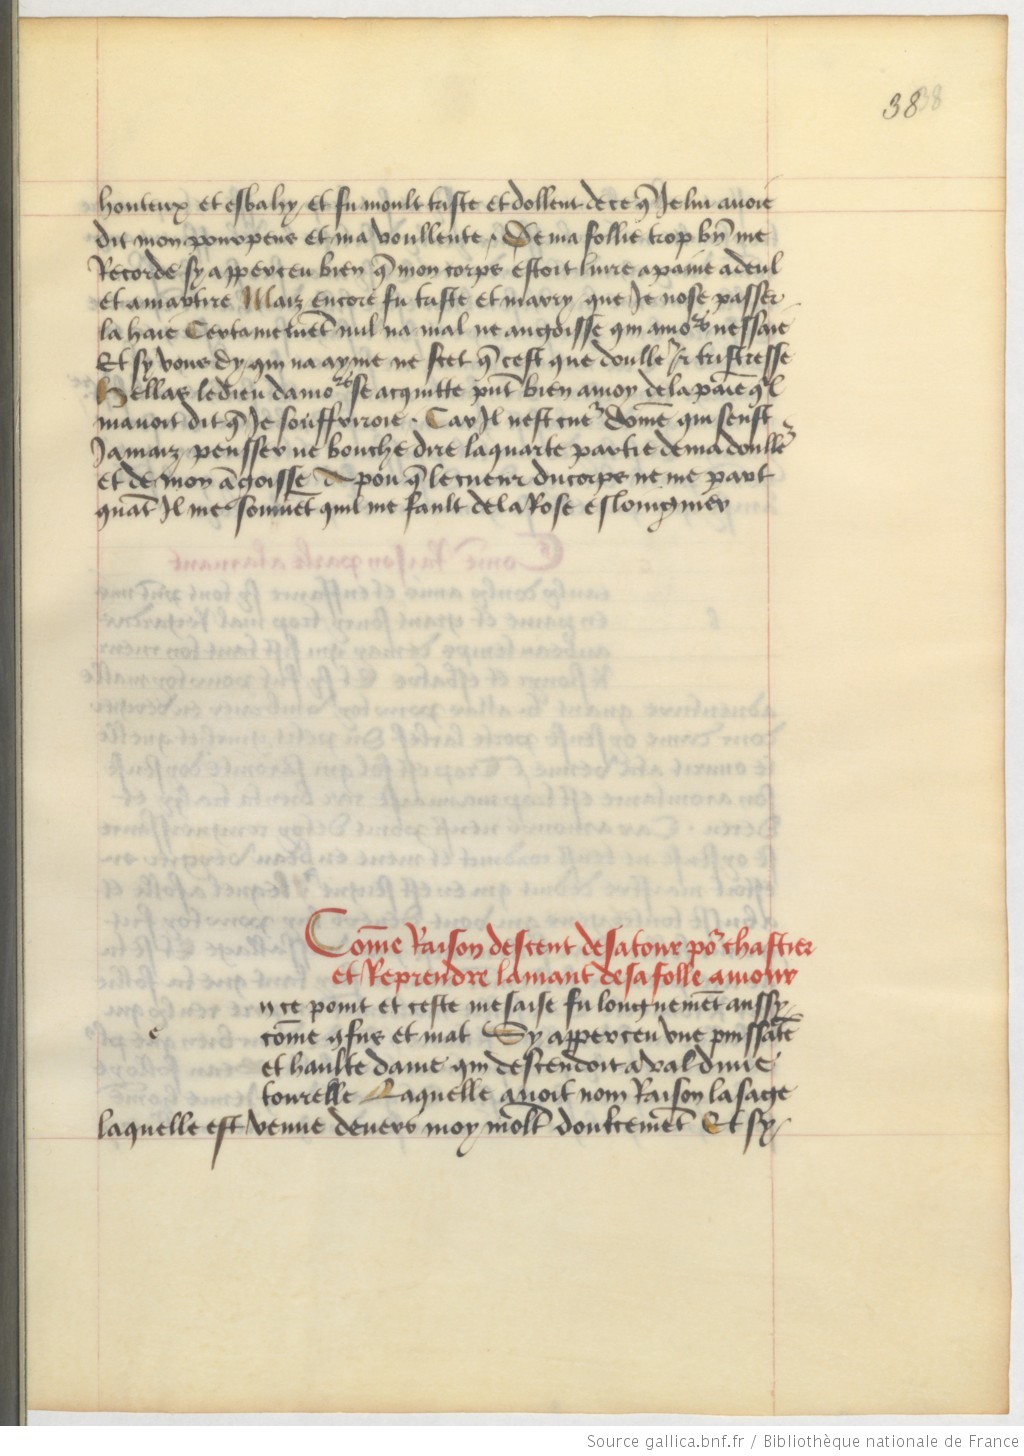 38 38
honteux et esbahy et fu moult triste et dollent de ce q̃ Je lui avoie
dit mon pourpens et ma voullente . De ma follie trop bn̄ me
Recorde sy apperceu bien q̃ mon corps estoit livre a paine a deul
et a martire Maiz encore fu triste et marry que Je nose passer
la haie Certainemēt nul na mal ne angoisse qui amo͛s nessaie
Et sy vous dy qui na ayme ne scet q̃ cest que doulle͛ tristresse
Hellas le dieu damo͛s se acquitte pñt bien a moy de la paine ql
mavoit dit q̃ Je souffreroie . Car Il nest cue͛ domē qui sceust
Jamaiz pensser ne bouche dire la quarte partie de ma doulle͛
et de mon āgoisse A pou q̃ le cueur du corps ne me part
quāt Il me souviēt quil me fault de la Rose eslongnier
Com̄e Raison descent de sa tour po͛ chastier
et Reprendre lamant de sa folle amour
e
n ce point et ceste mesaise fu longuemēt aussy
com̄e ꝯfus et mat Sy apperceu une puissāte
et haulte dame qui descendoit aval dune
tourelle Laquelle avoit nom Raison la sage
laquelle est venue devers moy molt doulcemēt Et sy
Source gallica.bnf.fr / Bibliothèque nationale de France